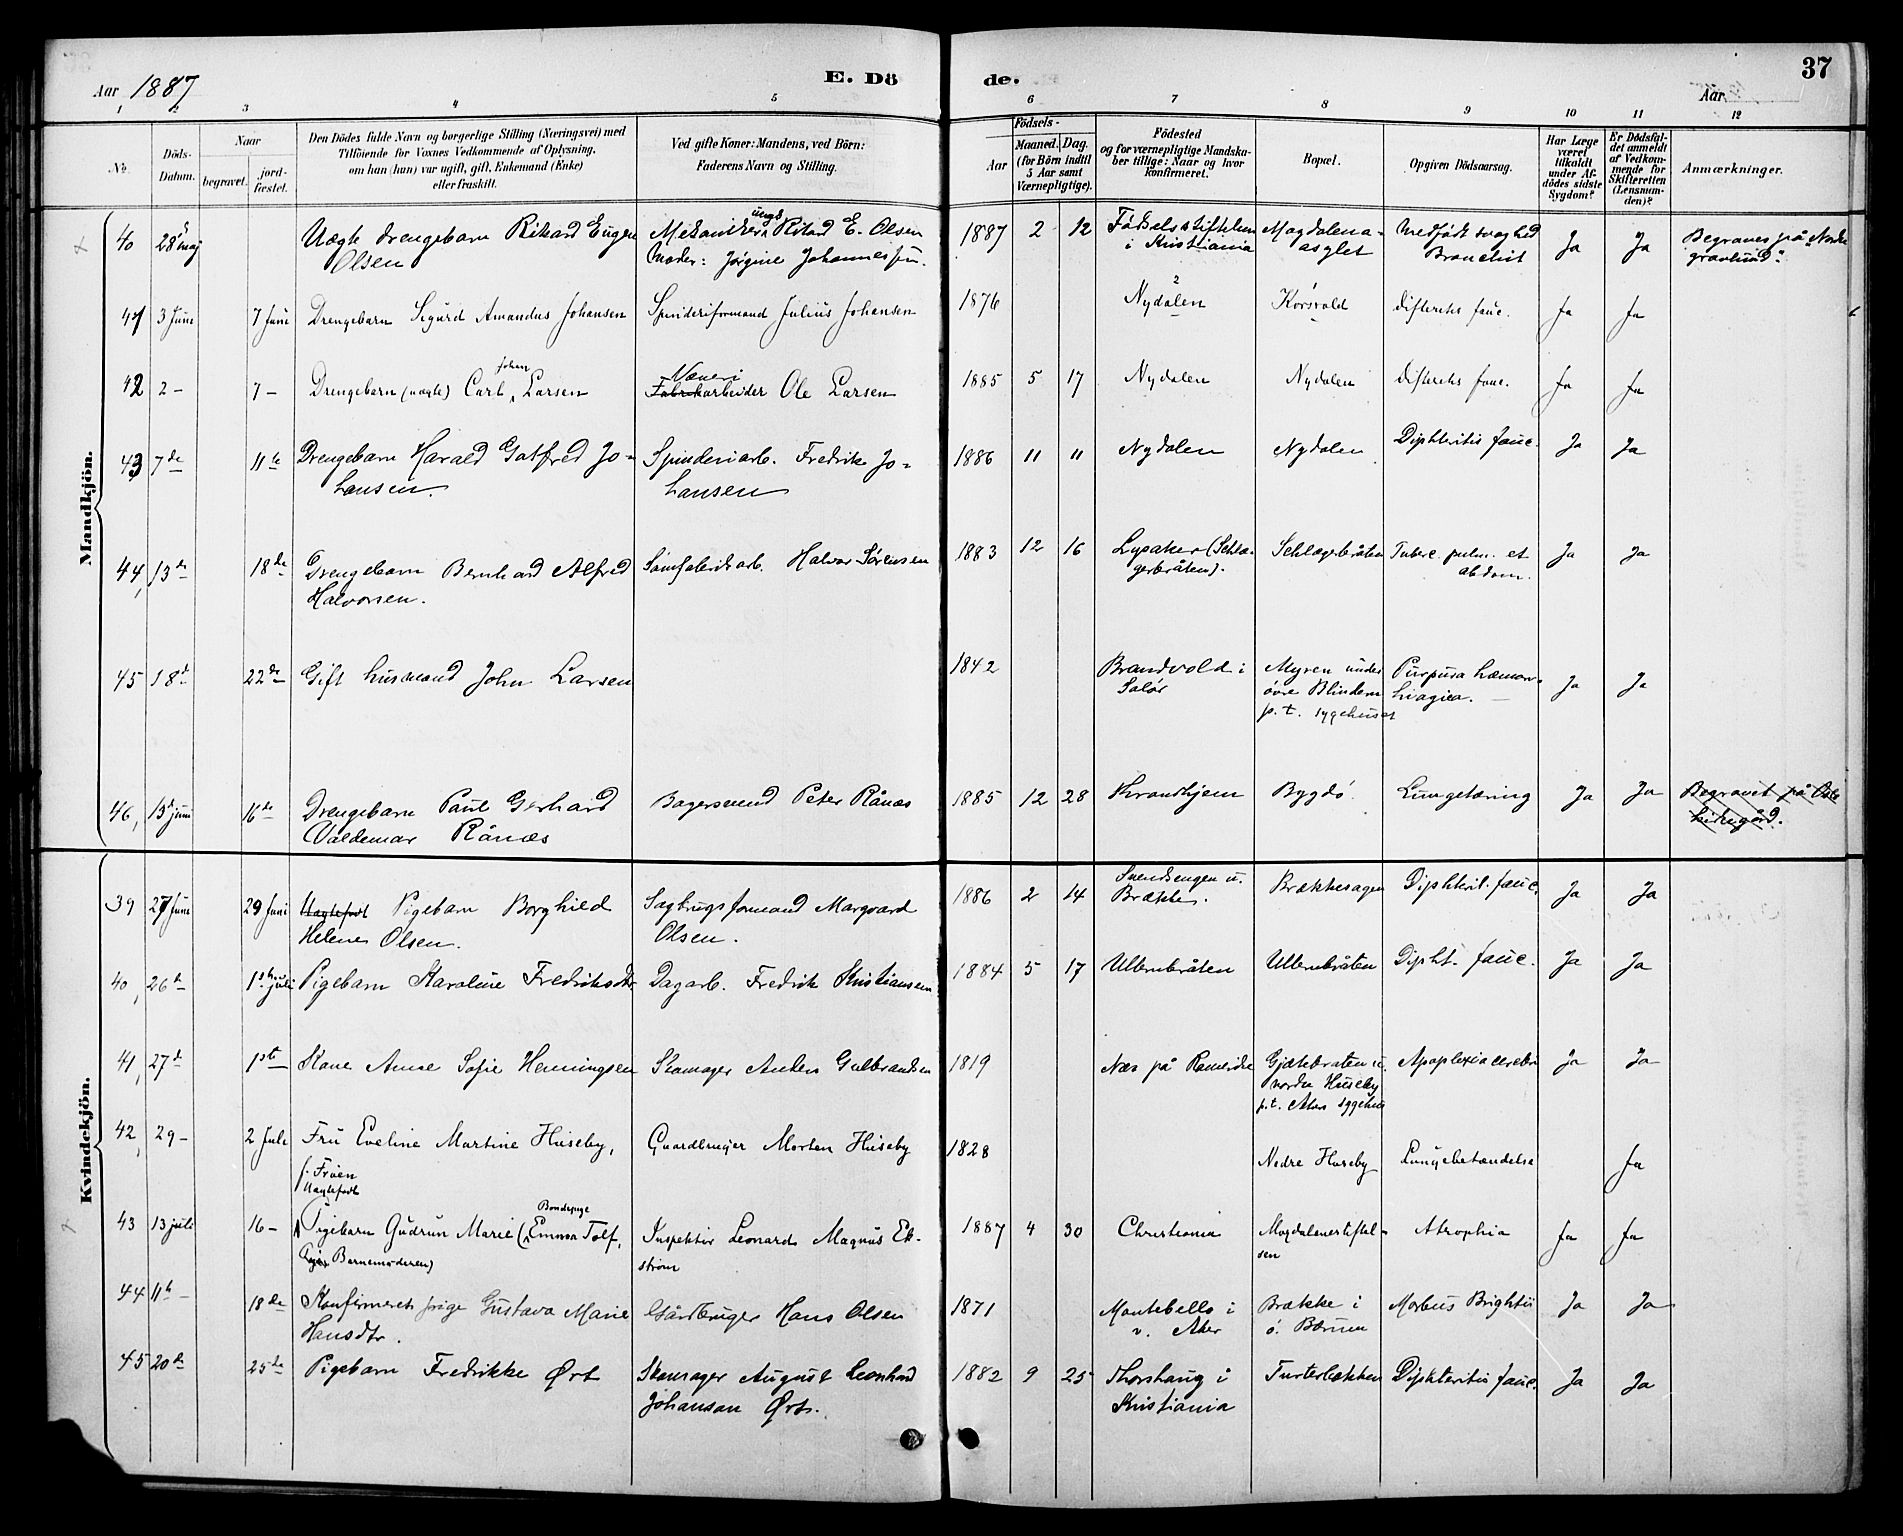 Aar 1887
E. Dö
de.
37
Aar
1 2 3 4 5 6 7 8 9 10 11 12
No.
Döds-Datum.
Naar
begravet.
jord-fæstet.
Den Dödes fulde Navn og borgerlige Stilling (Næringsvei) med
Tilföiende for Voxnes Vedkommende af Oplysning,
om han (hun) var ugift, gift, Enkemand (Enke)
eller fraskilt.
Ved gifte Koner: Mandens, ved Börn:
Faderens Navn og Stilling.
Födsels-
Aar
Maaned. Dag.
(for Börn indtil
5 Aar samt
Værnepligtige).
Födested
og for værnepligtige Mandska-
ber tillige: Naar og hvor
konfirmeret.
Bopæl.
Opgiven Dödsaarsag.
Har Læge
været
tilkaldt
under Af-
dödes sidste
Sygdom?
Er Dödsfal-
det anmeldt
af Vedkom-
mende for
Skifteretten
(Lensman-
den)?
Anmærkninger.
Mandkjön.
40 28 maj Uægte drengebarn Rikard Eugen Olsen
Rikard E. Olsen
Moder: Jørgine Johannesen.
1887 2 12 Fødselsstiftelsen i Kristiania
Magdalena-asylet
Medfødt svaghed Bronchit
Ja Ja Begraves på Nordre gravlund.
41 3 Juni 7 Juni Drengebarn Sigurd Amandus Johansen
Spinderiformand Julius Johansen
1876 Nydalen Korsvold Difterits fauc. Ja Ja
42 2 - 7 - Drengebarn (uægte) Carl Johan Larsen
Væveri Fabrikarbeider Ole Larsen
1885 5 17 Nydalen Nydalen Difterits fauc. Ja Ja
43 7de 11te Drengebarn Harald Gotfred Johansen
Spinderiarb. Fredrik Johansen
1886 11 11 Nydalen Nydalen Diphteritis fauc. Ja Ja
44, 13de 18de Drengebarn Bernhard Alfred Halvorsen.
Sømfabrikarb. Halvor Sørensen
1883 12 16 Lysaker (Schlagerbråten).
Schlagerbråten Tuberc. pulm. et abdom. Ja Ja
45 18d 22de Gift husmand John Larsen
1842 Brandvold i Solør
Myren under øvre Blindern p.t. sygehuset
Purpura hæmorrhagica. Ja Ja
46, 13d juni 16de Drengebarn Paul Gerhard Valdemar Rånæs
Bagersvend Peter Rånæs
1885 12 28 Throndhjem Bygdø Lungetæring Ja Ja
Begravet på Oslo kirkegård.
Kvindekjön.
39 27 Juni 29 Juni Uægtefødt Pigebarn Borghild Helene Olsen.
Sagbrugsformand Margvard Olsen.
1886 2 14 Svendsengen u. Brække.
Brækkesagen Diphterit. fauc. Ja Ja
40, 26de 1ste juli Pigebarn Karoline Fredriksdtr
Dagarb. Fredrik Kristiansen
1884 5 17 Ullernbråten Ullernbråten Dipht. fauc. Ja Ja
41, 27d 1ste Kone Anne Sofie Henningsen
Skomager Anders Gulbrandsen
1819 Næs på Romerike
Gjætebråten u. nordre Huseby p.t. Akers sygehus
Apoplexia cerebri Ja Ja
42, 29 - 2 Juli Fru Eveline Martine Huseby, f. Frøen
Gaardbruger Morten Huseby
1828 Nedre Huseby Lungebetændelse Ja
43 13 juli 16 - Uægtefødt Pigebarn Gudrun Marie (Bondepige Emma Tolf, Barnemoderen)
Inspektør Leonard Magnus Ekstrøm
1887 4 30 Christiania Magdalenestiftelsen Atrophia Ja Ja
44 11te - 18de Konfirmeret pige Gustava Marie Hansdtr.
Gårdbruger Hans Olsen
1871 Montebello i v. Aker
Brække i ø. Bærum Morbus Brightii Ja Ja
45 20de 25de Pigebarn Fredrikke Ørt
Skomager August Leonhard Johansen Ørt.
1882 9 25 Thorshaug i Kristiania
Turterbækken Diphteritis fauc. Ja Ja